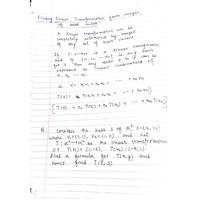 Finding Linear Transformation from images
of basis vectors
A linear transformation can be
completely determined by images
of any set of basis vectors
If T: V → W is a linear transformation
and if {v1, v2, ... vn} is any basis
for V then any vector v in V can be
expressed as linear combination of
v1, v2 ... vn
ie v = k1v1 + k2v2 + ... + knvn
T(v) = T(k1v1 + k2v2 + ... + knvn)
T(v) = k1 T(v1) + k2 T(v2) + ... + kn T(vn)
Q Consider the basis S of R² S = {v1, v2}
where v1 = (1,1), v2 = (1,0) and let
T: R² → R² be the linear transformation
s.t. T(v1) = (1,-2), T(v2) = (-4,1).
Find a formula for T(x,y) and
hence find T(5,-3)